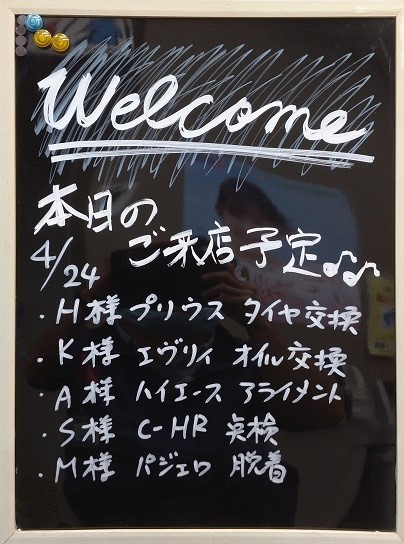 Welcome
本日の
ご来店予定♪♫
4/24
・H様 プリウス タイヤ交換
・K様 エヴリィ オイル交換
・A様 ハイエース アライメント
・S様 C-HR 点検
・M様 パジェロ 脱着